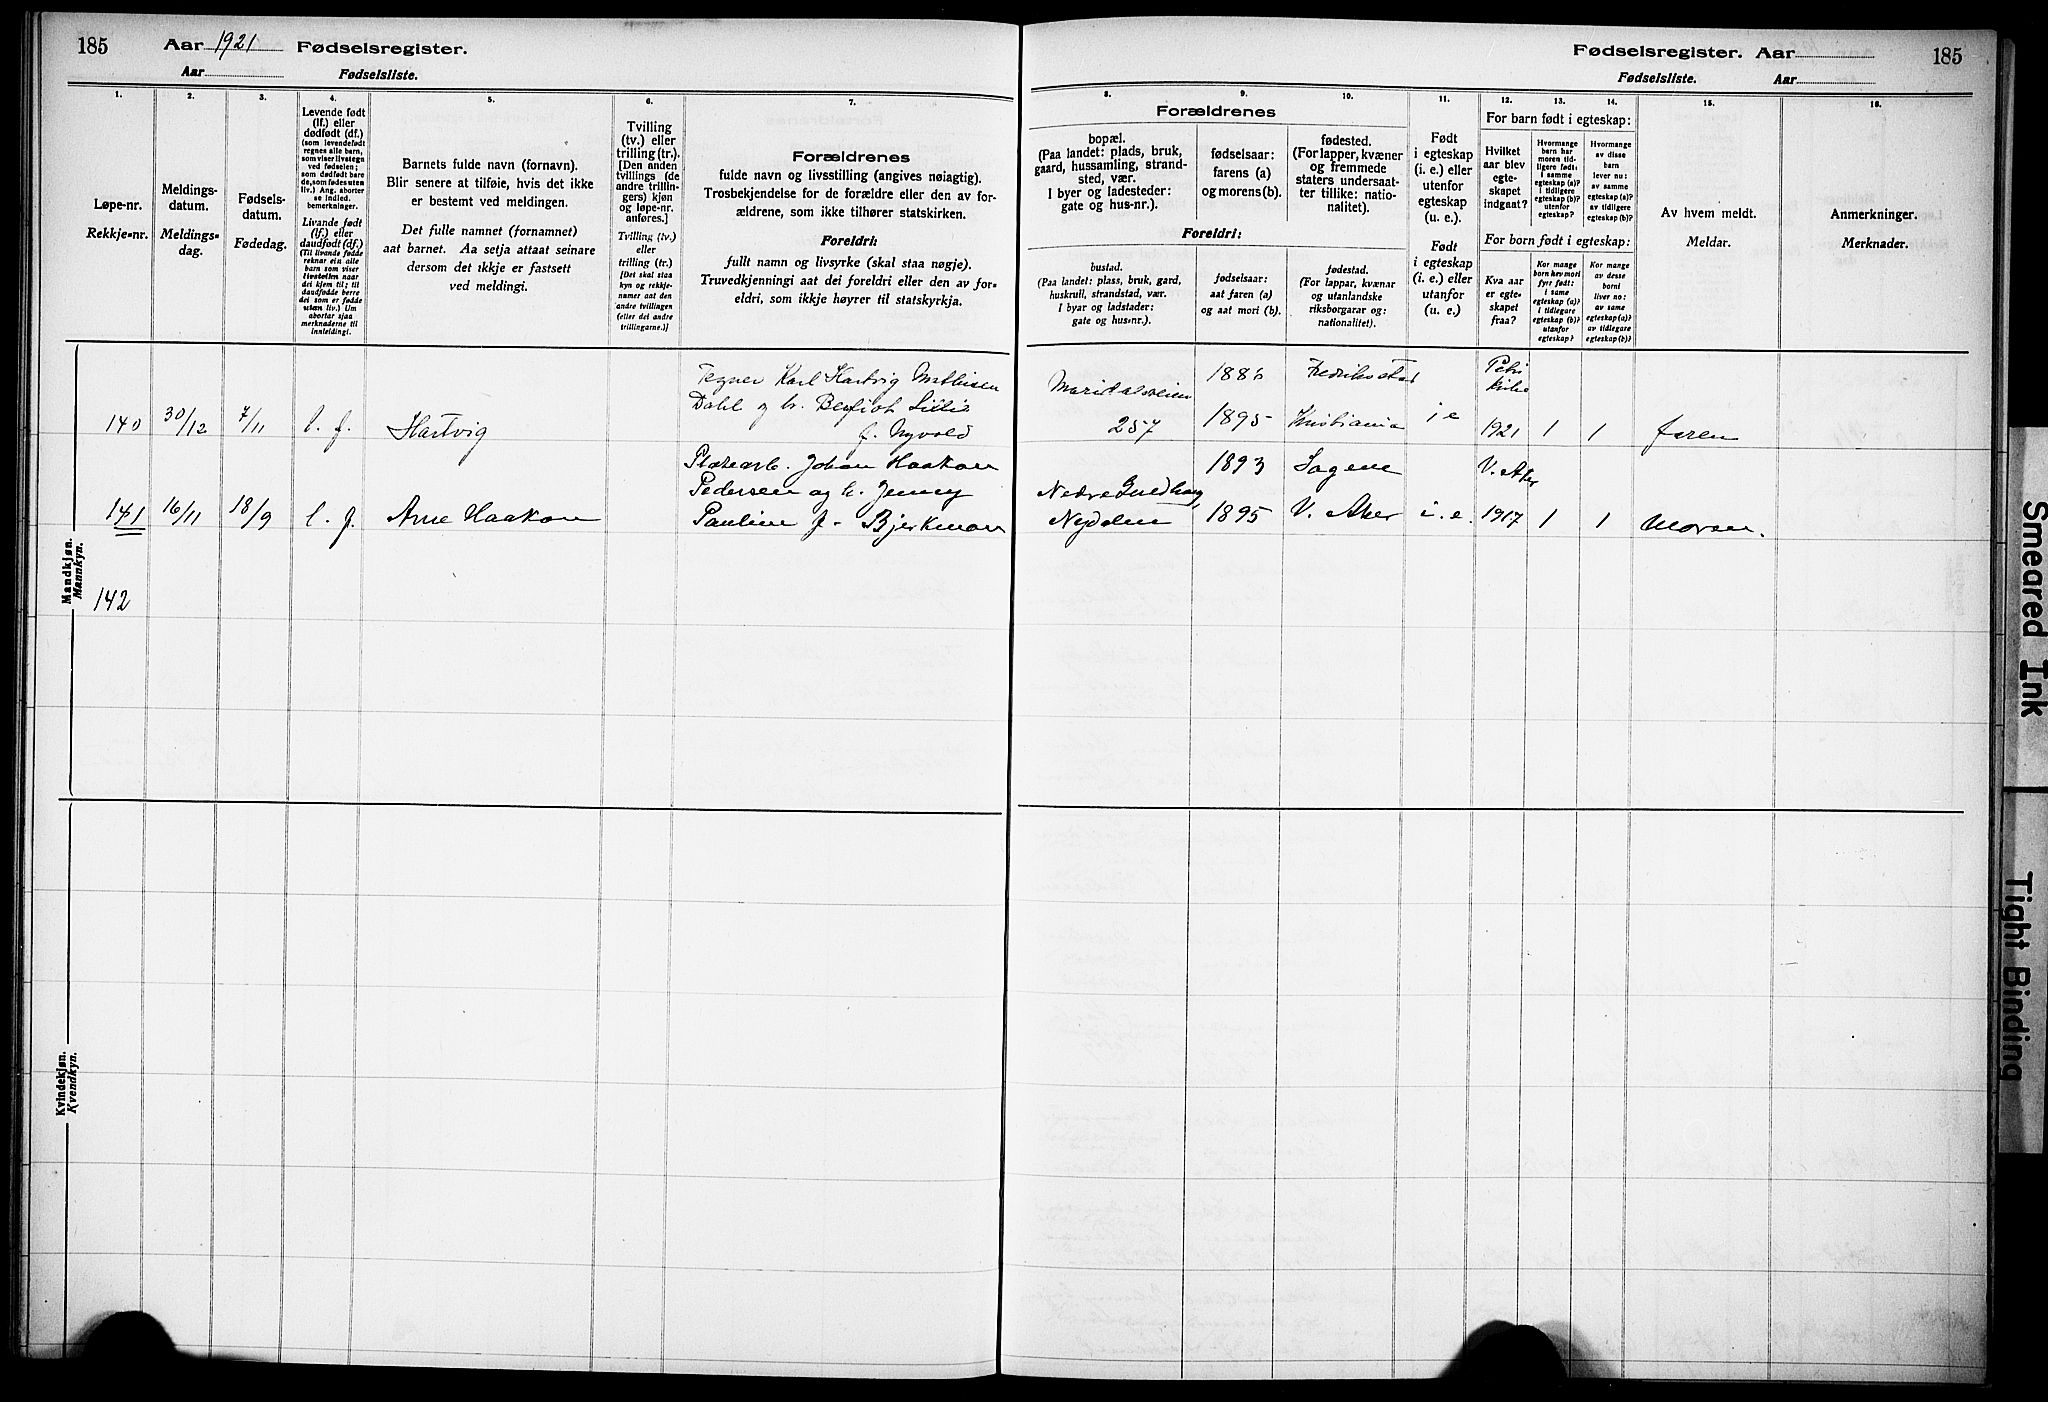 185 Aar 1921 Fødselsregister.
Aar Fødselsliste.
1. 2. 3. 4. 5. 6. 7.
Løpe-nr.
Rekkje-nr.
Meldings-
datum.
Meldings-
dag.
Fødsels-
datum.
Fødedag.
Levende født
(lf.) eller
dødfødt (df.)
(som levendefødt
regnes alle barn,
som viser livstegn
ved fødselen;
som dødfødt bare
de, som fødes uten
liv.) Ang. aborter
se indled.
bemerkninger.
Livande født
(lf.) eller
daudfødt (df.)
(Til livande fødde
reknar ein alle
barn som viser
livsteikn naar
dei kjem til; til
daudfødde berre
dei som er fødde
utan liv.) Um
abortar sjaa
merknaderne til
innleiding).
Barnets fulde navn (fornavn).
Blir senere at tilføie, hvis det ikke
er bestemt ved meldingen.
Det fulle namnet (fornamnet)
aat barnet. Aa setja attaat seinare
dersom det ikkje er fastsett
ved meldingi.
Tvilling
(tv.) eller
trilling (tr.).
[Den anden
tvillings (de
andre trillin-
gers) kjøn
og løpe-nr.
anføres.]
Tvilling (tv.)
eller
trilling (tr.).
[Det skal staa
kyn og rekkje-
numer aat den
andre tvillingen
(eller dei andre
trillingarne.)]
Forældrenes
fulde navn og livsstilling (angives nøiagtig).
Trosbekjendelse for de forældre eller den av for-
ældrene, som ikke tilhører statskirken.
Foreldri:
fullt namn og livsyrke (skal staa nøgje).
Truvedkjenningi aat dei foreldri eller den av for-
eldri, som ikkje høyrer til statskyrkja.
Mandkjøn.
Mannkyn.
Tegner Karl Hartvig Mathisen
Dahl og h.
140 30/12 7/11 l. f. Hartvig f. Nyvold
Johan Haakon
Pedersen og h. Jenny
141 16/11 18/9 l. f. Arne Haakon Pauline f. Bjerkman
142
Kvindekjøn.
Kvendkyn.
Fødselsregister. Aar 185
Fødselsliste. Aar
8. 9. 10. 11. 12. 13. 14. 15. 16.
Forældrenes
bopæl.
(Paa landet: plads, bruk,
gaard, hussamling, strand-
sted, vær.
I byer og ladesteder:
gate og hus-nr.).
fødselsaar:
farens (a)
og morens (b).
fødested.
(For lapper, kvæner
og fremmede
staters undersaat-
ter tillike: natio-
nalitet).
Foreldri:
bustad.
(Paa landet: plass, bruk, gard,
huskrull, strandstad, vær.
I byar og ladstader:
gate og hus-nr.).
fødselsaar:
aat faren (a)
og aat mori (b).
fødestad.
(For lappar, kvænar
og utanlandske
riksborgarar og:
nationalitet).
Født
i egteskap
(i. e.) eller
utenfor
egteskap
(u. e.).
Født
i egteskap
(i. e.) eller
utanfor
(u. e.)
For barn født i egteskap:
Hvilket
aar blev
egte-
skapet
indgaat?
Hvormange
barn har
moren tid-
ligere født:
i samme
egteskap (a)?
i tidligere
egteskap (b)?
utenfor
egteskap?
Hvormange
av disse
barn
lever nu:
av samme
egteskap (a)?
av tidligere
egteskap (b)?
For born født i egteskap:
Kva aar
er egte-
skapet
fraa?
Kor mange
born hev mori
fyrr født:
i same
egteskap (a)?
i tidlegare
egteskap (b)?
utanfor
egteskap?
Kor mange
av desse
borni
liver no:
av same
egteskap (a)?
av tidlegare
egteskap (b)?
Av hvem meldt.
Meldar.
Anmerkninger.
Merknader.
Maridalsveien 1886 Fredrikstad
257 1895 Kristiania i e 1921 1 1 faren
1893 Sagene V. Aker
Nedre
Nydalen 1895 V. Aker i. e. 1917 1 1 Moren.
Smeared Ink
Tight Binding